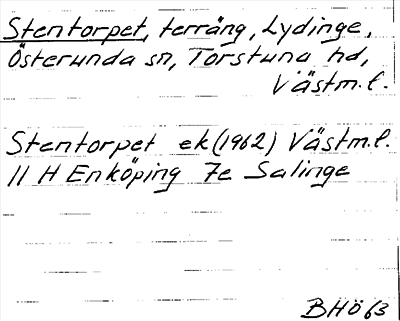 Stentorpet, terräng, Lydinge,
Österunda sn, Torstuna hd,
Västm.l.
Stentorpet ek (1962) Västm.l.
11 H Enköping 7e Salinge
BHÖ 63